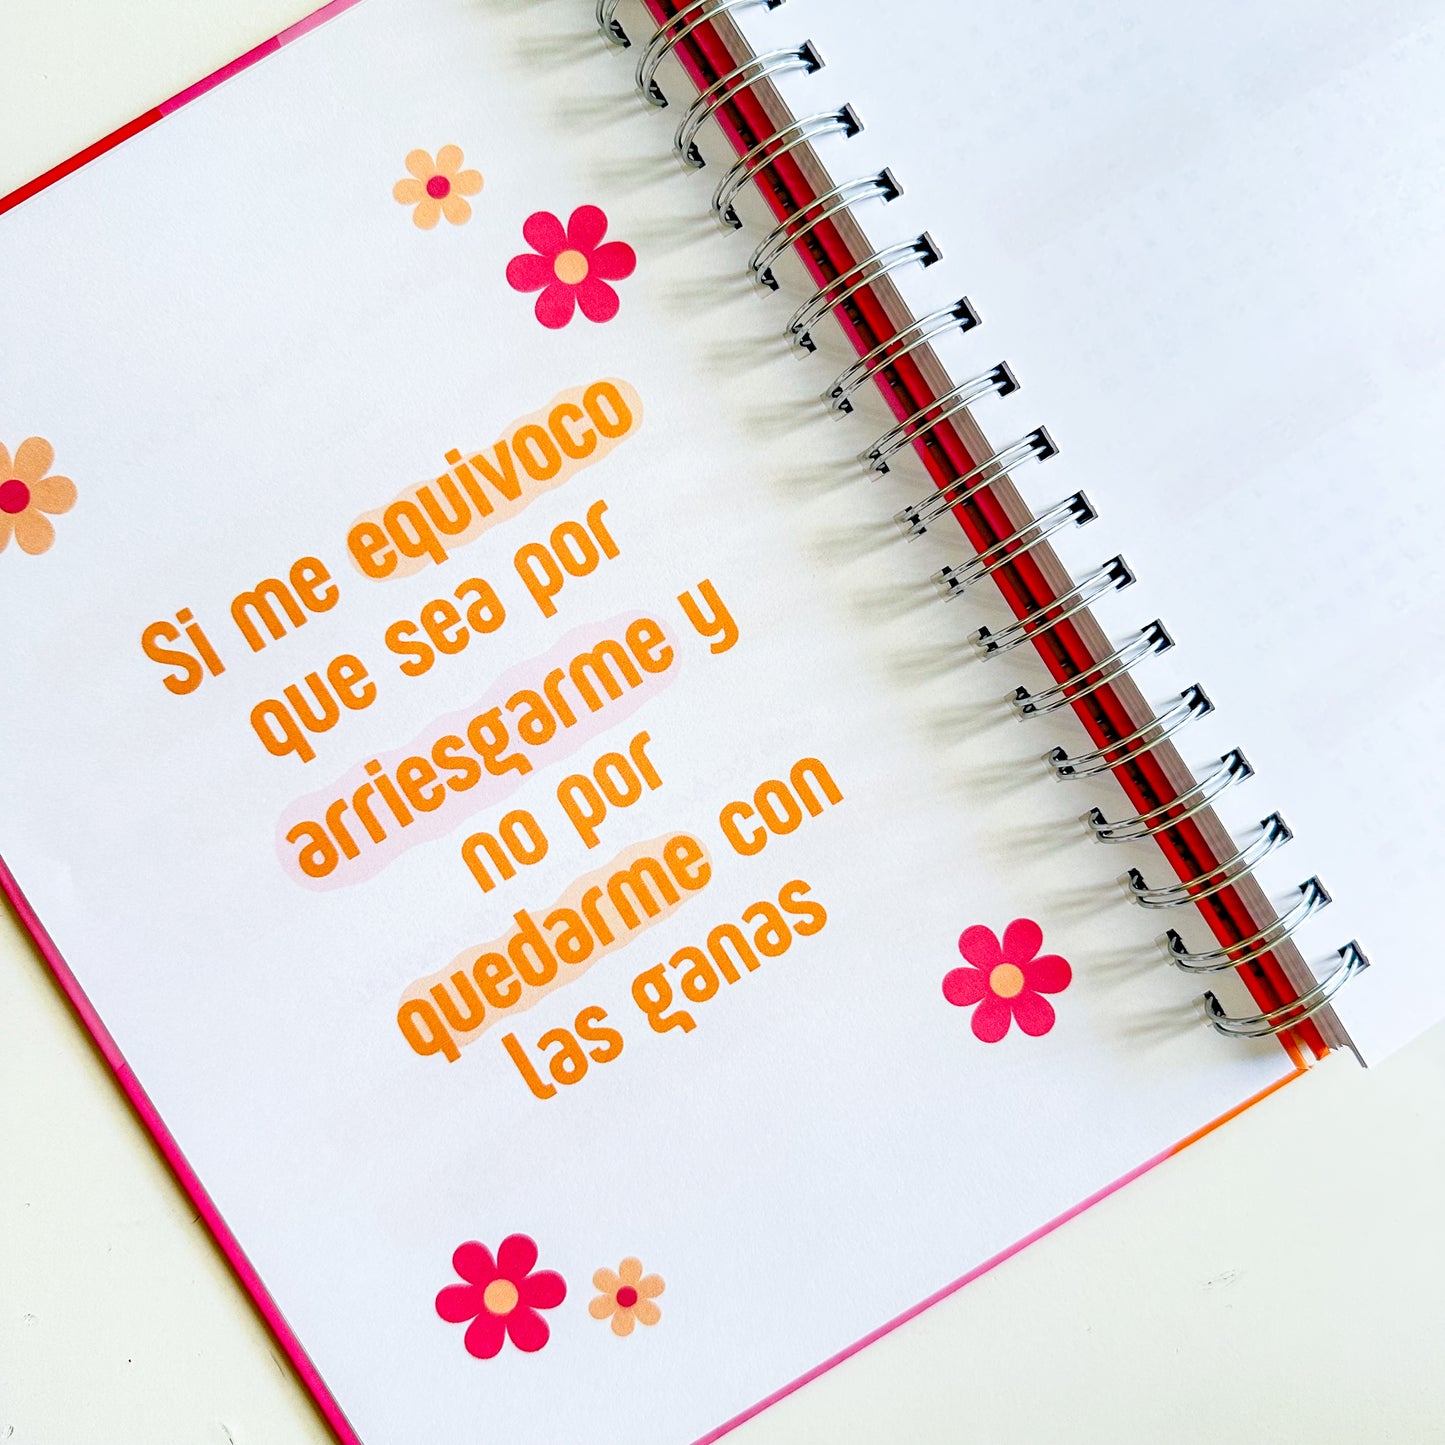 Si me equivoco
que sea por
arriesgarme y
no por
quedarme con
las ganas